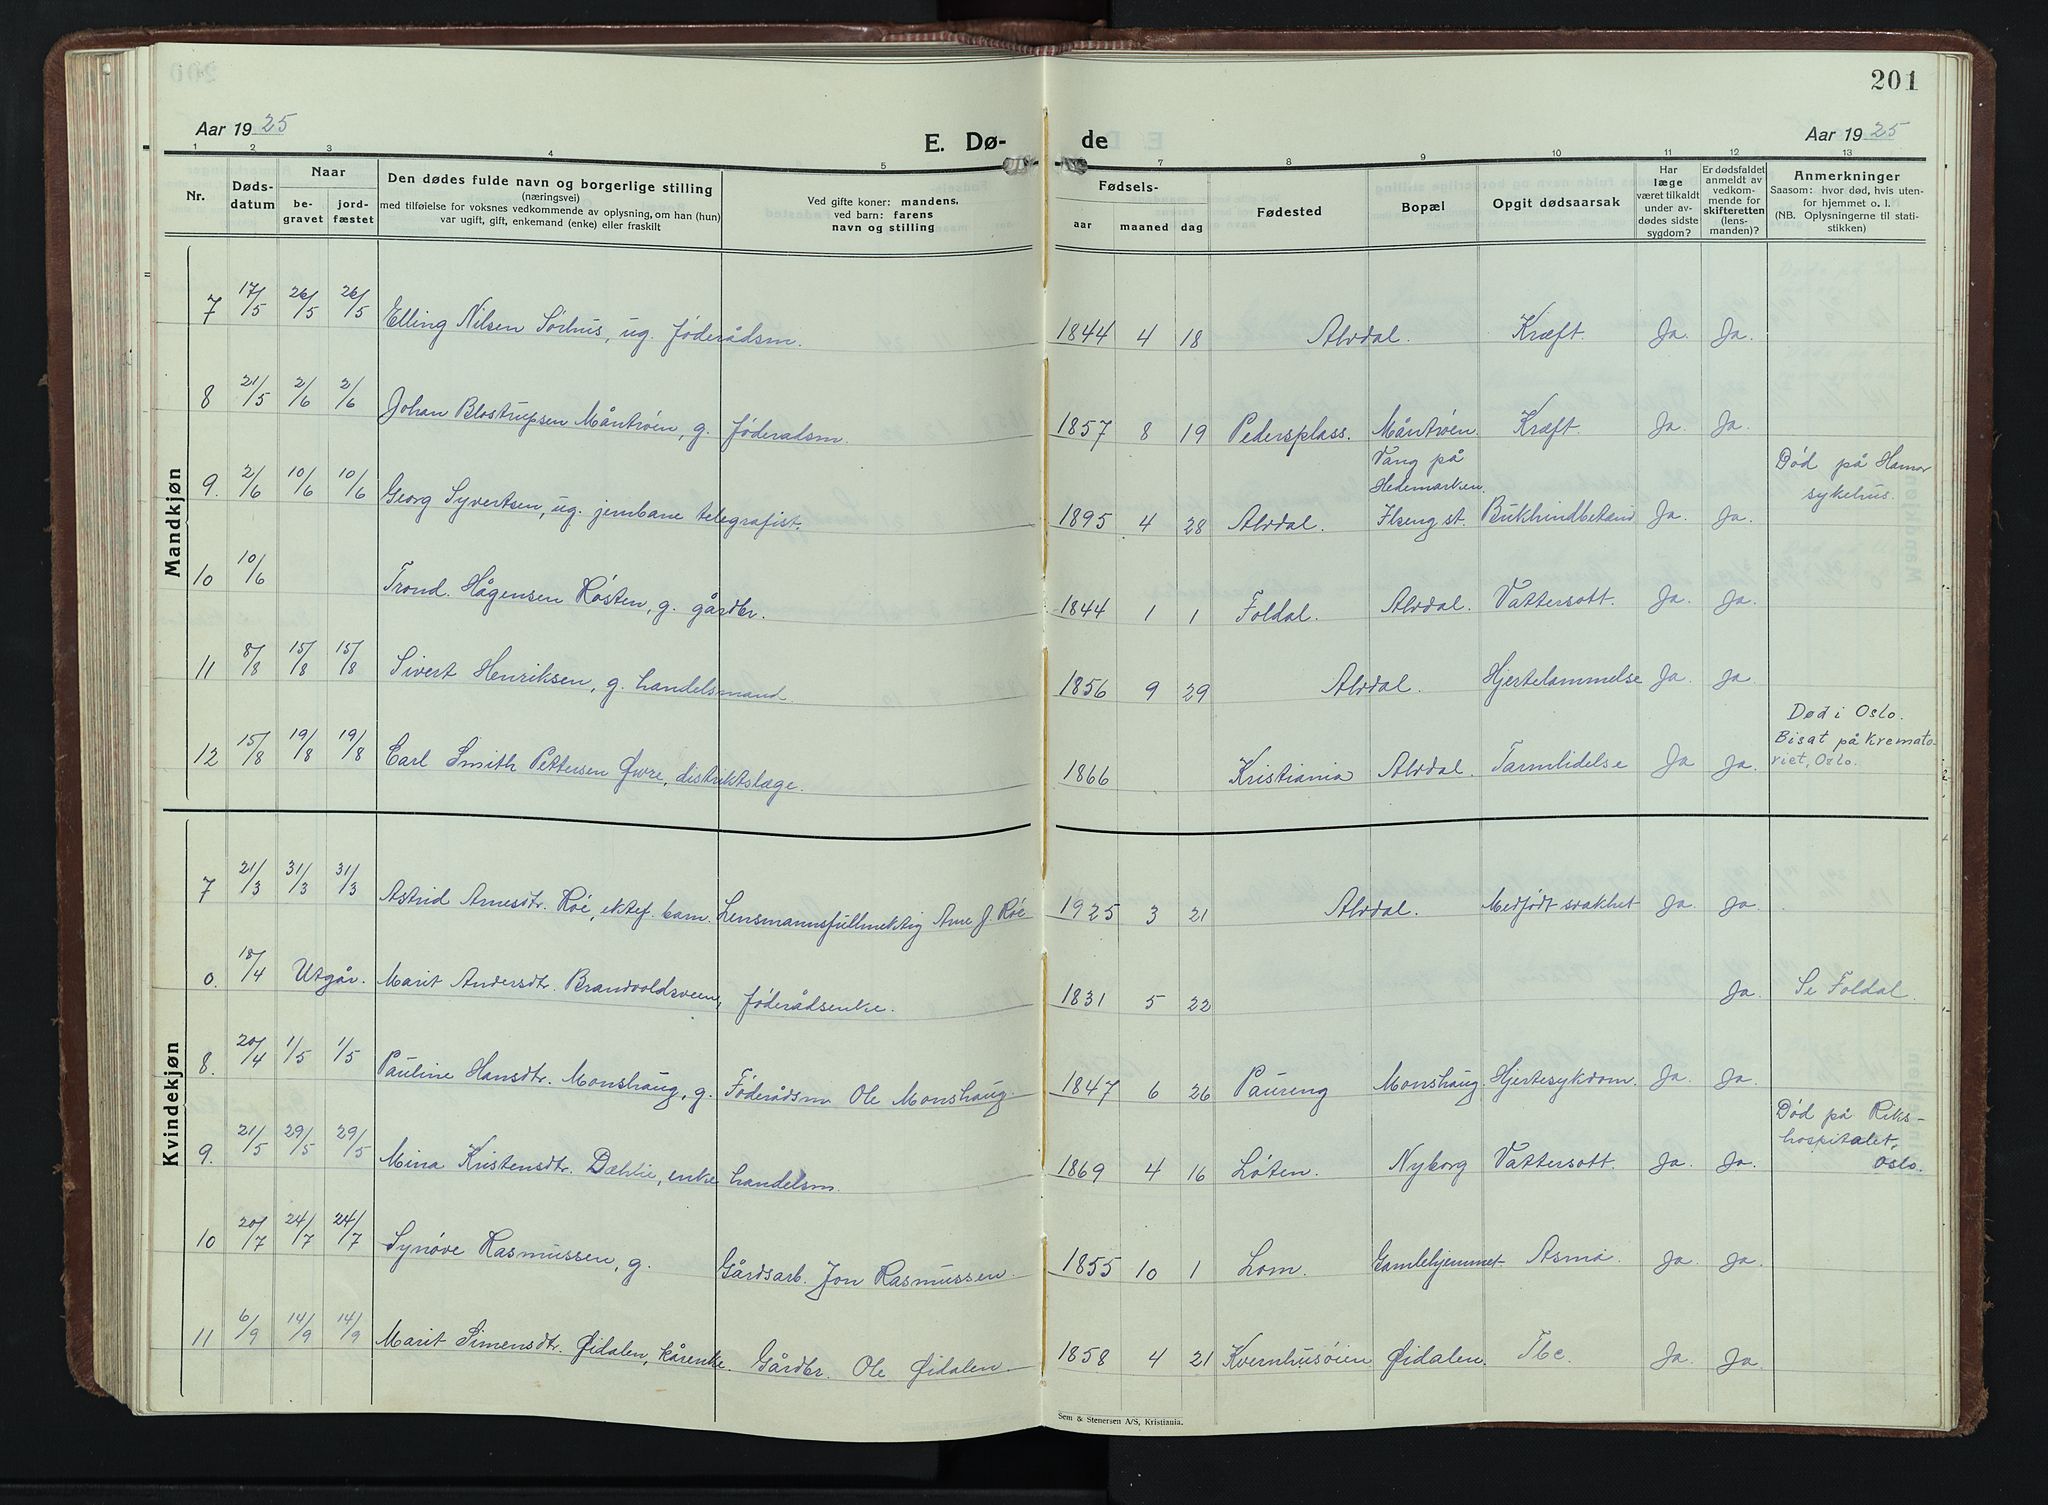 201
Aar 1925
E. Dø-
de
Aar 1925
1 2 3 4 5 7 8 9 10 11 12 13
Nr.
Døds-
datum
Naar
be-
gravet
jord-
fæstet
Den dødes fulde navn og borgerlige stilling
(næringsvei)
med tilføielse for voksnes vedkommende av oplysning, om han (hun)
var ugift, gift, enkemand (enke) eller fraskilt
Ved gifte koner: mandens.
ved barn: farens
navn og stilling
Fødsels-
aar maaned dag
Fødested
Bopæl
Opgit dødsaarsak
Har
læge
været tilkaldt
under av-
dødes sidste
sygdom?
Er dødsfaldet
anmeldt av
vedkom-
mende for
skifteretten
(lens-
manden)?
Anmerkninger
Saasom: hvor død, hvis uten-
for hjemmet o. l.
(NB. Oplysningerne til stati-
stikken)
Mandkjøn
7 17/5 26/5 26/5 Elling Nilsen Sørhus, ug. føderådsm. 1844 4 18 Alvdal. Kræft. Ja. Ja.
8 21/5 2/6 2/6 Johan Blostrupsen Måntrøen, g. føderadsm. 1857 8 19 Pedersplass. Måntrøen. Kræft. Ja. Ja.
9. 2/6 10/6 10/6 Georg Syvertsen, ug. jernbane telegrafist. 1895 4 28 Alvdal.
Vang på
Hedemarken.
Ilseng st. Bukhindbetænd Ja. Ja.
Død på Hamar
sykehus.
10 10/6 Trond. Hågensen Røsten, g. gårdbr. 1844 1 1 Foldal. Alvdal. Vattersott. Ja. Ja.
11 8/8 15/8 15/8 Sivert Henriksen, g. handelsmand. 1856 9 29 Alvdal. Hjertelammelse Ja. Ja.
12 15/8 19/8 19/8 Carl Smith Pettersen Øwre, distriktslæge. 1866 Kristiania Alvdal. Tarmlidelse Ja Ja.
Død i Oslo.
Bisat på kremato-
riet, Oslo.
Kvindekjøn
7 21/3 31/3 31/3 Astrid Arnesdtr. Røe, ektef. barn. Lensmannsfullmektig Arne J. Røe 1925 3 21 Alvdal. Medfødt svakhet Ja. Ja.
0. 18/4 Utgår. Marit Andersdtr. Brandvoldsveen, føderådsenke. 1831 5 22 Ja. Se Foldal.
8. 20/4 1/5 1/5 Pauline Hansdtr. Monshaug, g. Føderådsm Ole Monshaug. 1847 6 26 Paureng Monshaug. Hjertesykdom. Ja. Ja.
9. 21/5 29/5 29/5 Mina Kristensdtr. Dæhlie, enke handelsm. 1869 4 16 Løten. Nyborg Vattersott. Ja. Ja.
Død på Riks-
hospitalet,
Oslo.
10 20/7 24/7 24/7 Synøve Rasmussen, g. Gårdsarb. Jon Rasmussen. 1855 10 1 Lom. Gamlehjemmet Asma. Ja. Ja.
11 6/9 14/9 14/9 Marit Simensdtr. Øidalen, kårenke. Gårdbr. Ole Øidalen. 1858 4 21 Kvernhusøien Øidalen. Tbc Ja. Ja.
Sem & Stenersen A/S, Kristiania.